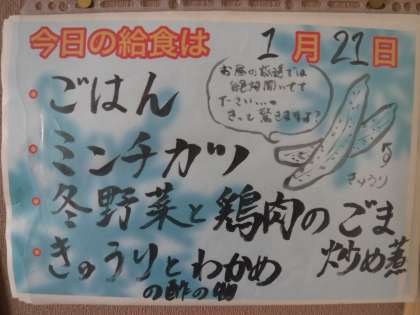 今日の給食は 1月21日
お昼の放送では
絶対聞いてて
ださい....。
きっと驚きますよ?
きゅうり
ごはん
ミンチカツ
冬野菜と鶏肉のごま
炒め煮
きゅうりとわかめ
の酢の物